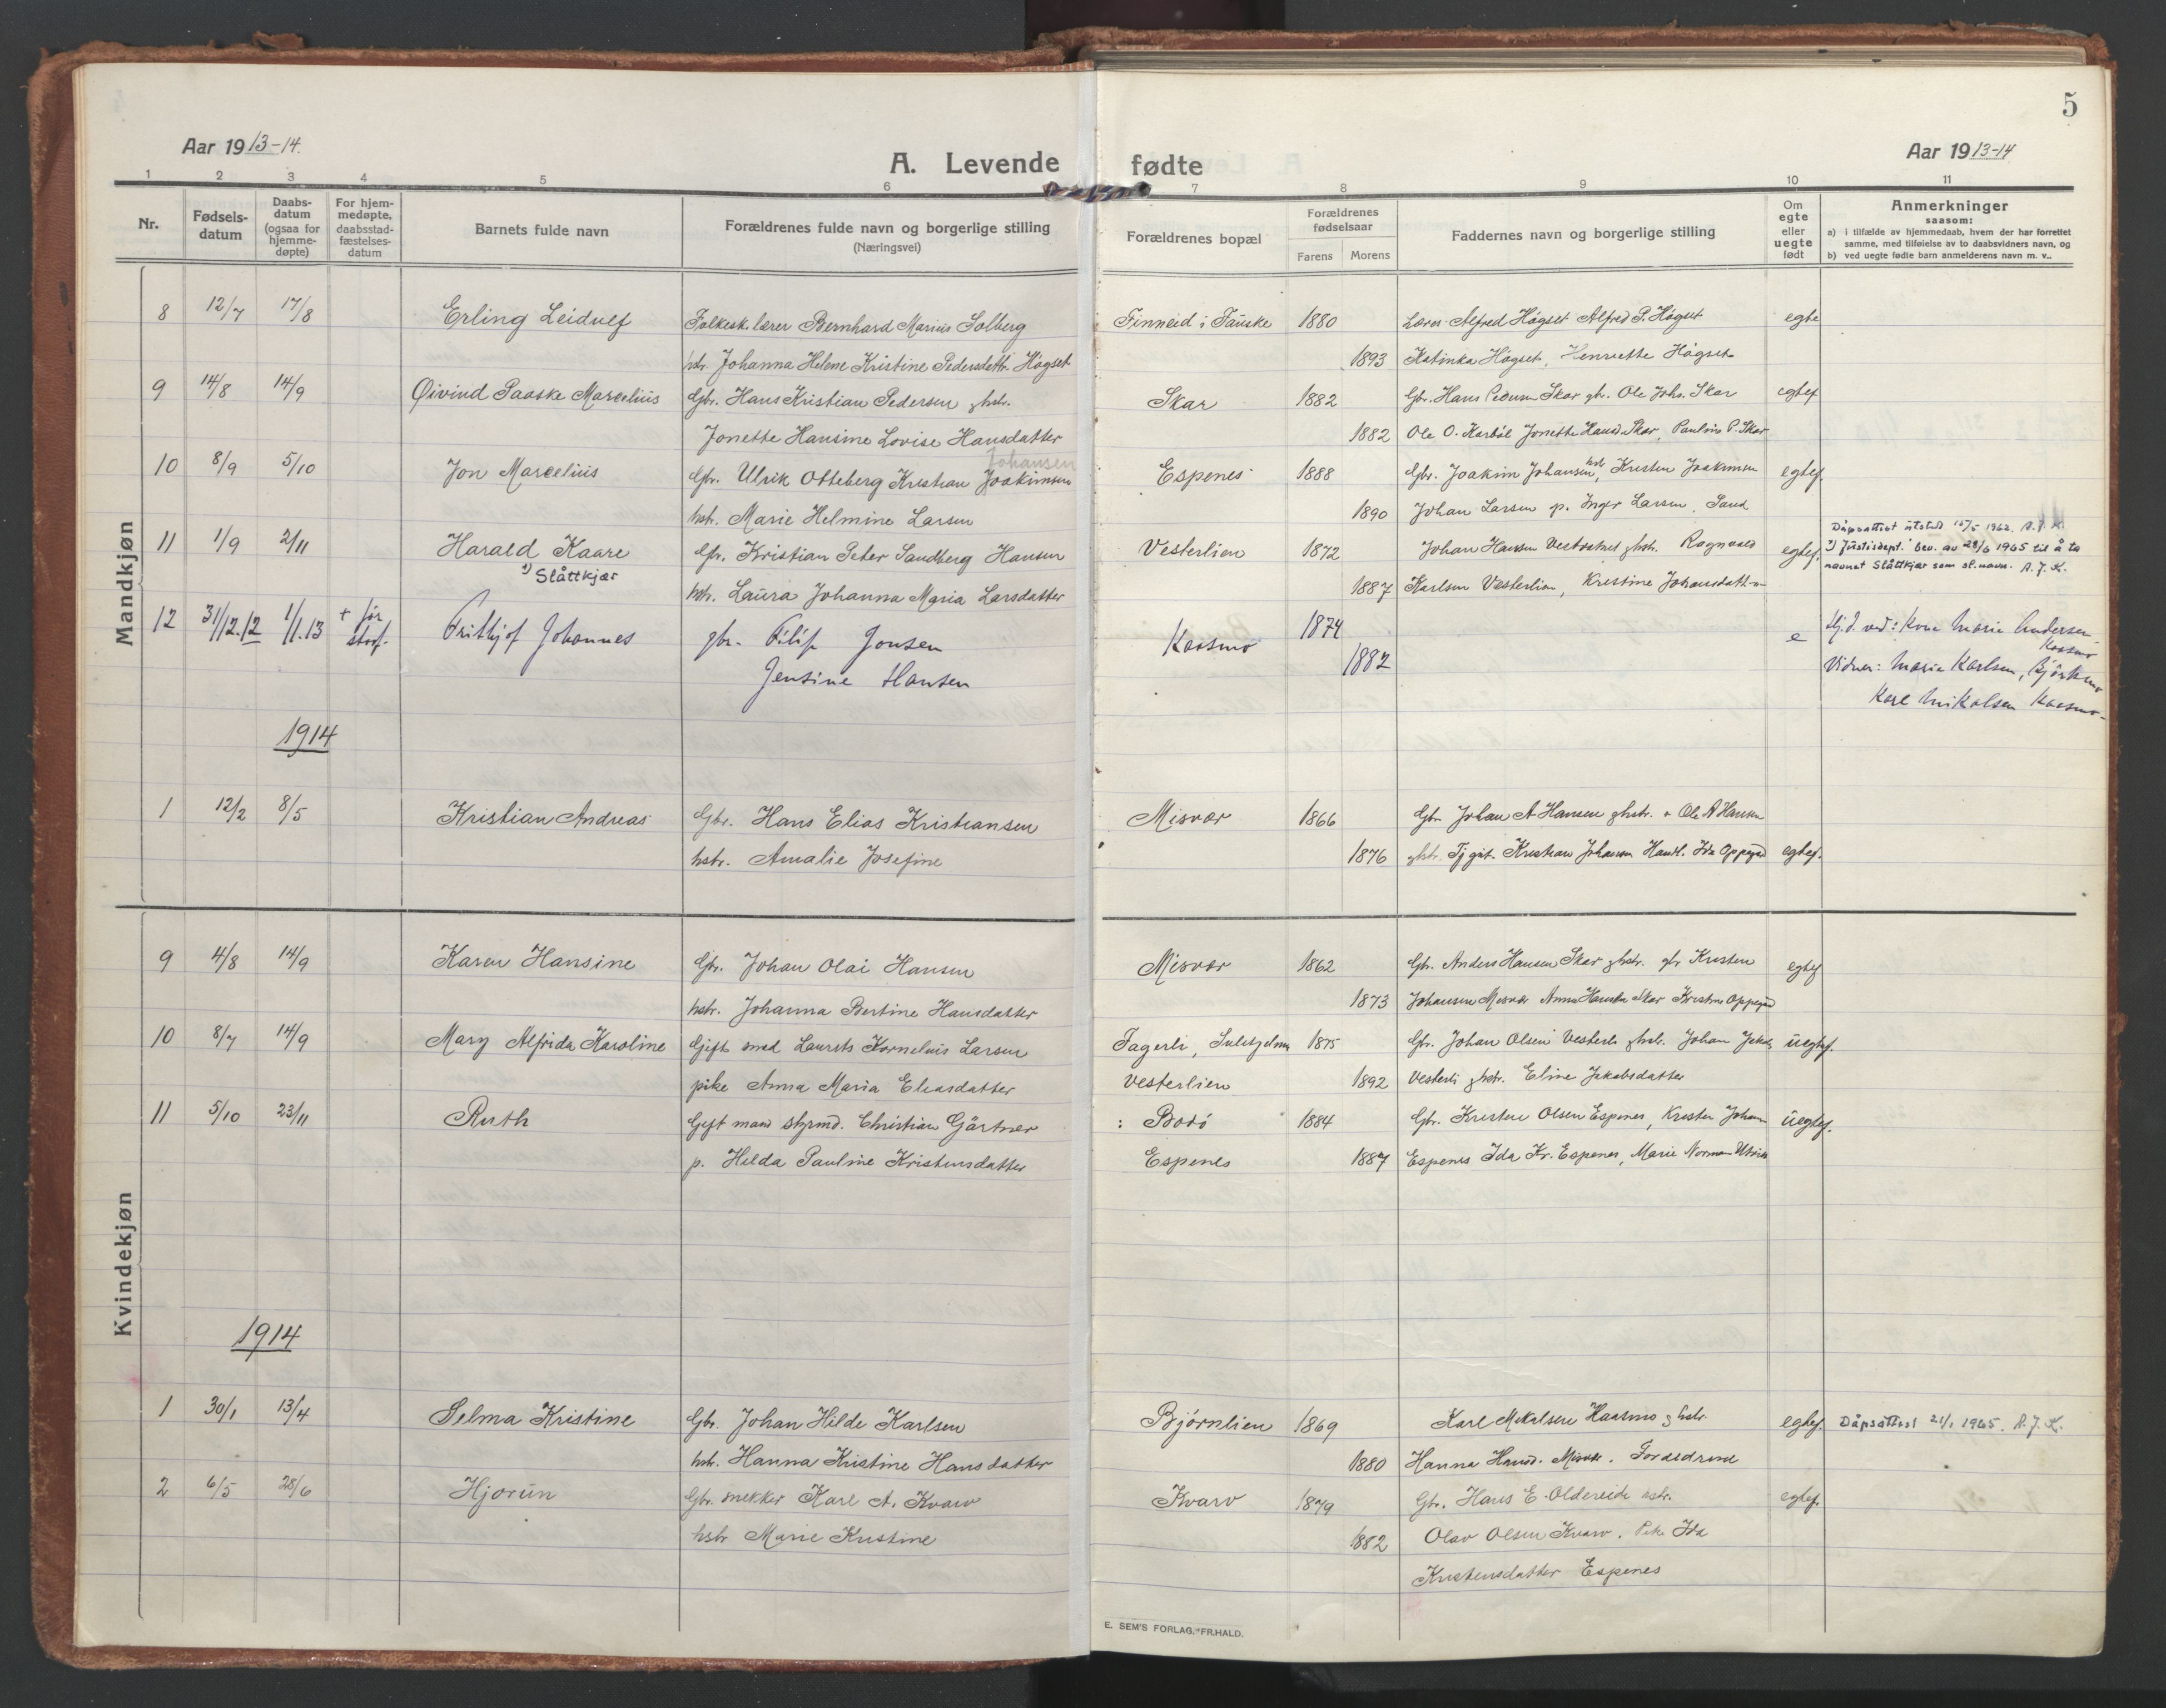 5
Aar 1913-14.
A. Levende fødte
Aar 1913-14
1 2 3 4 5 6 7 8 9 10 11
Nr.
Fødsels-
datum
Daabs-
datum
(ogsaa for
hjemme-
døpte)
For hjem-
medøpte,
daabsstad-
fæstelses-
datum
Barnets fulde navn
Forældrenes fulde navn og borgerlige stilling
(Næringsvei)
Forældrenes bopæl
Forældrenes
fødselsaar
Farens Morens
Faddernes navn og borgerlige stilling
Om
egte
eller
uegte
født
Anmerkninger
saasom:
a) i tilfælde av hjemmedaab, hvem der har forrettet
samme, med tilføielse av to daabsvidners navn, og
b) ved uegte fødte barn anmelderens navn m. v..
Mandkjøn
8 12/7 17/8 Erling Leidulf Folkesk. lærer Bernhard Marius Solberg Finneid i Fauske 1880 Lærer Alfred Høgset Alfred P. Høgset egte
hstr. Johanna Helene Kristine Pedersdattr. Høgset 1893 Katinka Høgset, Henriette Høgset
9 14/8 14/9 Øivind Paaske Marcelius Gbr. Hans Kristian Pedersen ghstr. Skar 1882 Gbr. Hans Pedersen Skar gbr. Ole Johs. Skar egtef
Jonette Hansine Lovise Hansdatter 1882 Ole O. Karbøl Jonette Hansd. Skar, Pauline P. Skar
Johansen
10 8/9 5/10 Jon Marcelius Gbr. Ulrik Otteberg Kristian Joakimsen Espenes 1888 Gbr. Joakim Johansen, hstr. Kristen Joakimsen egtef.
hstr. Marie Helmine Larsen 1890 Johan Larsen p. Inger Larsen, Sand
11 1/9 2/11 Harald Kaare Gbr. Kristian Peter Sandberg Hansen Vesterlien 1872 Johan Hansen Vestvatnet ghstr. Ragnvald egtef.
1) Slåttkjær
Dåpsattest utstedt 15/5 1962. A.J.K.
1) Justisdept. bev. av 28/6 1965 til å ta
navnet Slåttkjær som sl.navn. A.J.K.
hstr. Laura Johanna Maria Larsdatter 1887 Karlsen Vesterlien, Kristine Johansdatter
12 31/12.12 1/1.13 + før stadf. Frithjof Johannes gbr. Filip Jonsen Kaosmo 1874 e Hj.d. ved: Kone Marie Andersen
Kaosmo
Jensine Hansen 1882 Vidner: Marie Karlsen, Bjørkmo
Karl Mikalsen Kaosmo
1914
1 12/2 8/5 Kristian Andreas Gbr. Hans Elias Kristiansen Misvær 1866 Gbr Johan A Hansen ghstr. Ole A Hansen
hstr. Amalie Josefine 1876 ghstr. Tj.gut. Kristian Johansen Handl. Ida Oppegård egtef.
Kvindekjøn
9 4/8 14/9 Karen Hansine Gbr. Johan Olai Hansen Misvær 1862 Gbr. Anders Hansen Skar ghstr. gbr Kristen egtef
hstr. Johanna Bertine Hansdatter 1873 Johansen Misvær Anna Hansdr Skar Kristine Oppegård
10 8/7 14/9 Mary Alfrida Karoline Gift smed Laurits Kornelius Larsen Fagerli, Sulitjelma 1875 Gbr. Johan Olsen Vesterli ghstr. Johan Jakobs uegtef.
pike Anna Maria Eliasdatter Vesterlien 1892 Vesterli ghstr. Eline Jakobsdatter
11 5/10 23/11 Ruth Gift mand styrmd. Christian Gärtner : Bodø 1884 Gbr. Kristen Olsen Espenes, Kristen Johan uegtef.
p. Hilda Pauline Kristensdatter Espenes 1887 Espenes Ida Kr. Espenes, Marie Norman Ulriks
1914
1 30/1 13/4 Selma Kristine Gbr. Johan Hilde Karlsen Bjørnlien 1869 Karl Mikalsen Kaasmo ghstr. egtef. Dåpsattest 21/1 1965. A.J.K.
hstr. Hanna Kristine Hansdatter 1880 Hanna Hansd. Misvær. Tordsdrend
2 6/5 28/6 Hjørun Gbr. snekker Karl A. Kvarv Kvarv 1879 Gbr. Hans E. Oldereide hstr. egtef.
hstr Marie Kristine 1882 Olav Olsen Kvarv. Pike Ida
Kristensdatter Espenes
E. SEM'S FORLAG, FR.HALD.